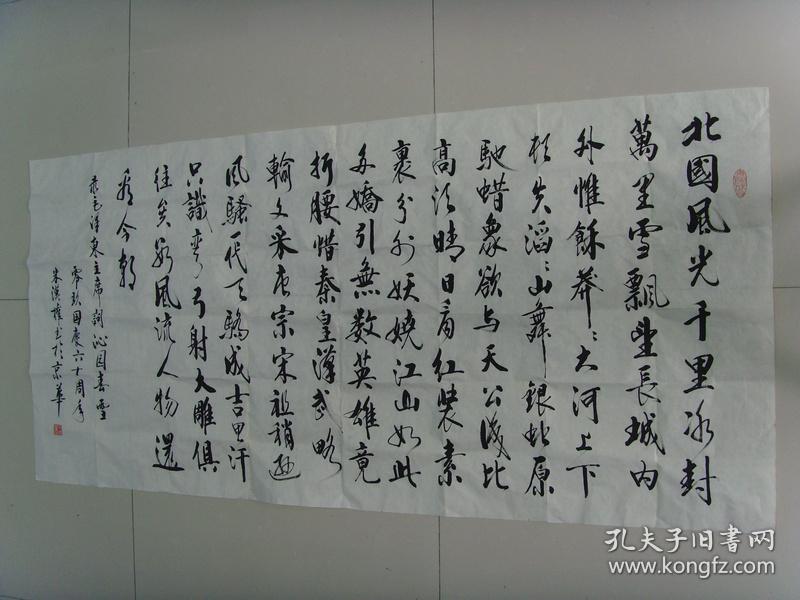 北國風光千里冰封
萬里雪飄望長城內
外惟餘莽〻大河上下
頓失滔〻山舞銀蛇原
馳蜡象欲与天公試比
高須晴日看紅裝素
裹分外妖嬈江山如此
多嬌引無数英雄竟
折腰惜秦皇漢武略
輸文采唐宗宋祖稍遜
風騷一代天驕成吉思汗
只識彎弓射大雕俱
往矣數風流人物還
看今朝
毛泽東主席詞沁园春雪
零玖国慶六十周年
朱漢 书於京華
孔夫子旧书网
www.kongfz.com